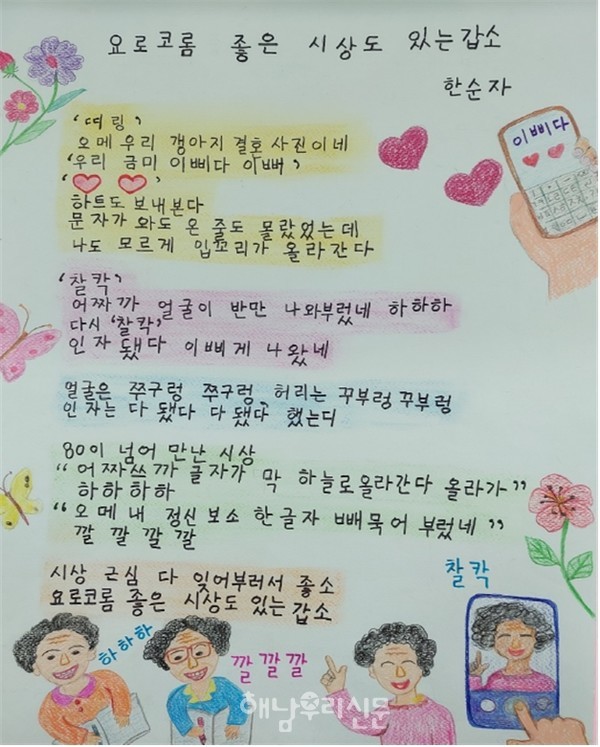 요로코롬 좋은 시상도 있는갑소
한순자
이삐다
'띠링'
오메 우리 갱아지 결혼사진이네
'우리 금미 이삐다 이뻐'
'♥ ♥'
하트도 보내본다
문자가 와도 온 줄도 몰랐었는데
나도 모르게 입꼬리가 올라간다
'찰칵'
어짜까 얼굴이 반만 나와부렀네 하하하
다시 '찰칵'
인자 됐다 이삐게 나왔네
얼굴은 쭈구렁 쭈구렁, 허리는 꾸부렁꾸부렁
인자는 다 됐다 다 됐다 했는디
80이 넘어 만난 시상
"어짜쓰까 글자가 막 하늘로올라간다 올라가"
하하하하
"오메 내 정신 보소 한글자 빼묵어 부렀네"
깔 깔 깔 깔
시상 근심 다 잊어부러서 좋소
요로코롬 좋은 시상도 있는갑소
찰칵
하하하
깔깔깔
해남우리신문